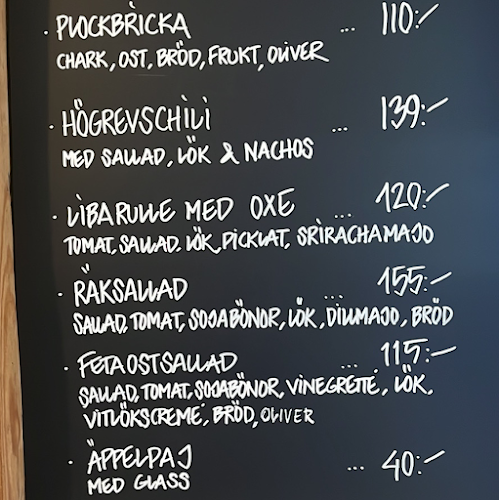 · PLOCKBRICKA ... 110:-
CHARK, OST, BRÖD, FRUKT, OLIVER
· HÖGREVSCHILI ... 139:-
MED SALLAD, LÖK & NACHOS
· LIBARULLE MED OXE ... 120:-
TOMAT, SALLAD. LÖK, PICKLAT, SRIRACHAMAJO
· RÄKSALLAD ... 155:-
SALLAD, TOMAT, SOJABÖNOR, LÖK, DILLMAJO, BRÖD
· FETAOSTSALLAD ... 115:-
SALLAD, TOMAT, SOJABÖNOR, VINEGRETTE, LÖK,
VITLÖKSCREME, BRÖD, OLIVER
· ÄPPELPAJ ... 40:-
MED GLASS